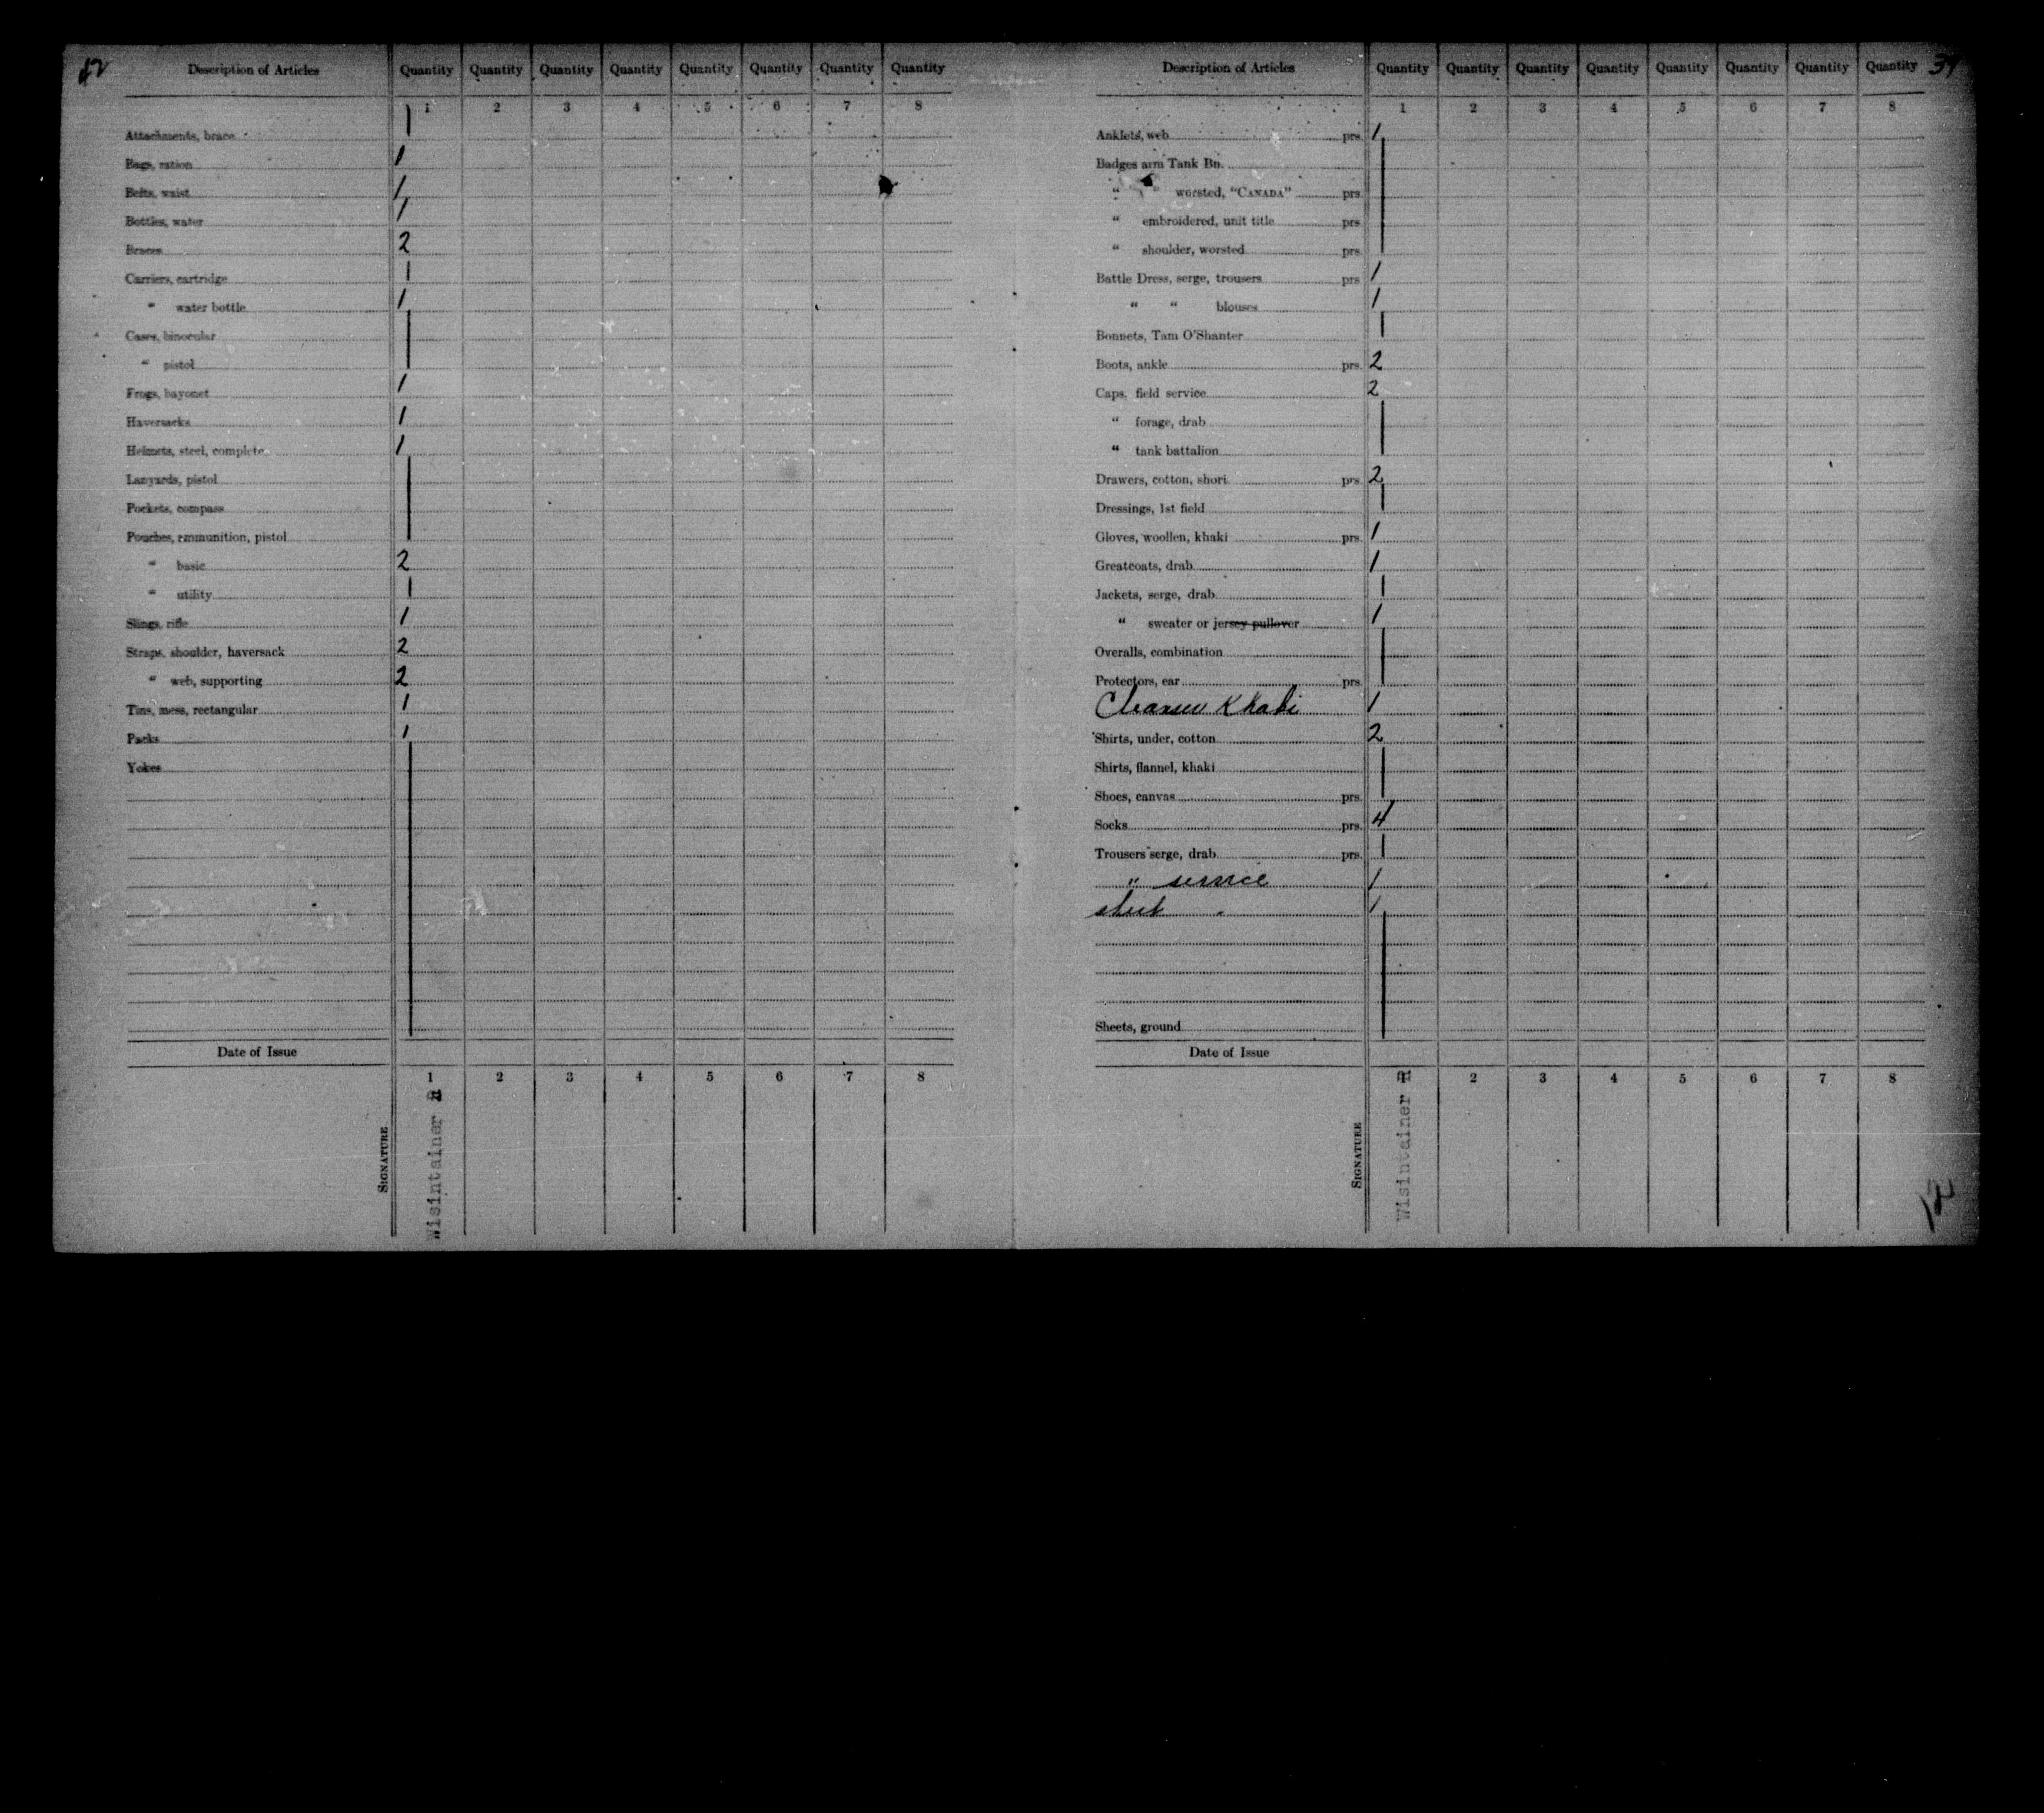 Description of Articles Quantity Quantity Quantity Quantity Quantity Quantity Quantity Quantity
1 2 3 4 5 6 7 8
Attachments, brace
Bags, ration 1
Belts, waist 1
Bottles, water 1
Braces 2
Carriers, cartridge
" water bottle 1
Cases, binocular
" pistol
Frogs, bayonet 1
Haversacks 1
Helmets, steel, complete 1
Lanyards, pistol
Pockets, compass
Pouches, ammunition, pistol
" basic 2
" utility
Slings, rifle 1
Straps, shoulder, haversack 2
" web, supporting 2
Tins, mess, rectangular 1
Packs 1
Yokes
Date of Issue
1 2 3 4 5 6 7 8
SIGNATURE
Wisintainer R
Description of Articles Quantity Quantity Quantity Quantity Quantity Quantity Quantity Quantity 34
1 2 3 4 5 6 7 8
Anklets, web prs. 1
Badges arm Tank Bn.
" " worsted, "CANADA" prs.
" embroidered, unit title prs.
" shoulder, worsted prs.
Battle Dress, serge, trousers prs. 1
" " blouses 1
Bonnets, Tam O'Shanter
Boots, ankle prs. 2
Caps, field service 2
" forage, drab
" tank battalion
Drawers, cotton, short prs. 2
Dressings, 1st field
Gloves, woollen, khaki prs. 1
Greatcoats, drab 1
Jackets, serge, drab
" sweater or jersey pullover 1
Overalls, combination
Protectors, ear prs.
Cleanser Khaki 1
Shirts, under, cotton 2
Shirts, flannel, khaki
Shoes, canvas prs.
Socks prs. 4
Trousers serge, drab prs.
" service 1
1
Sheets, ground
Date of Issue
2 3 4 5 6 7 8
SIGNATURE
Wisintainer R
12